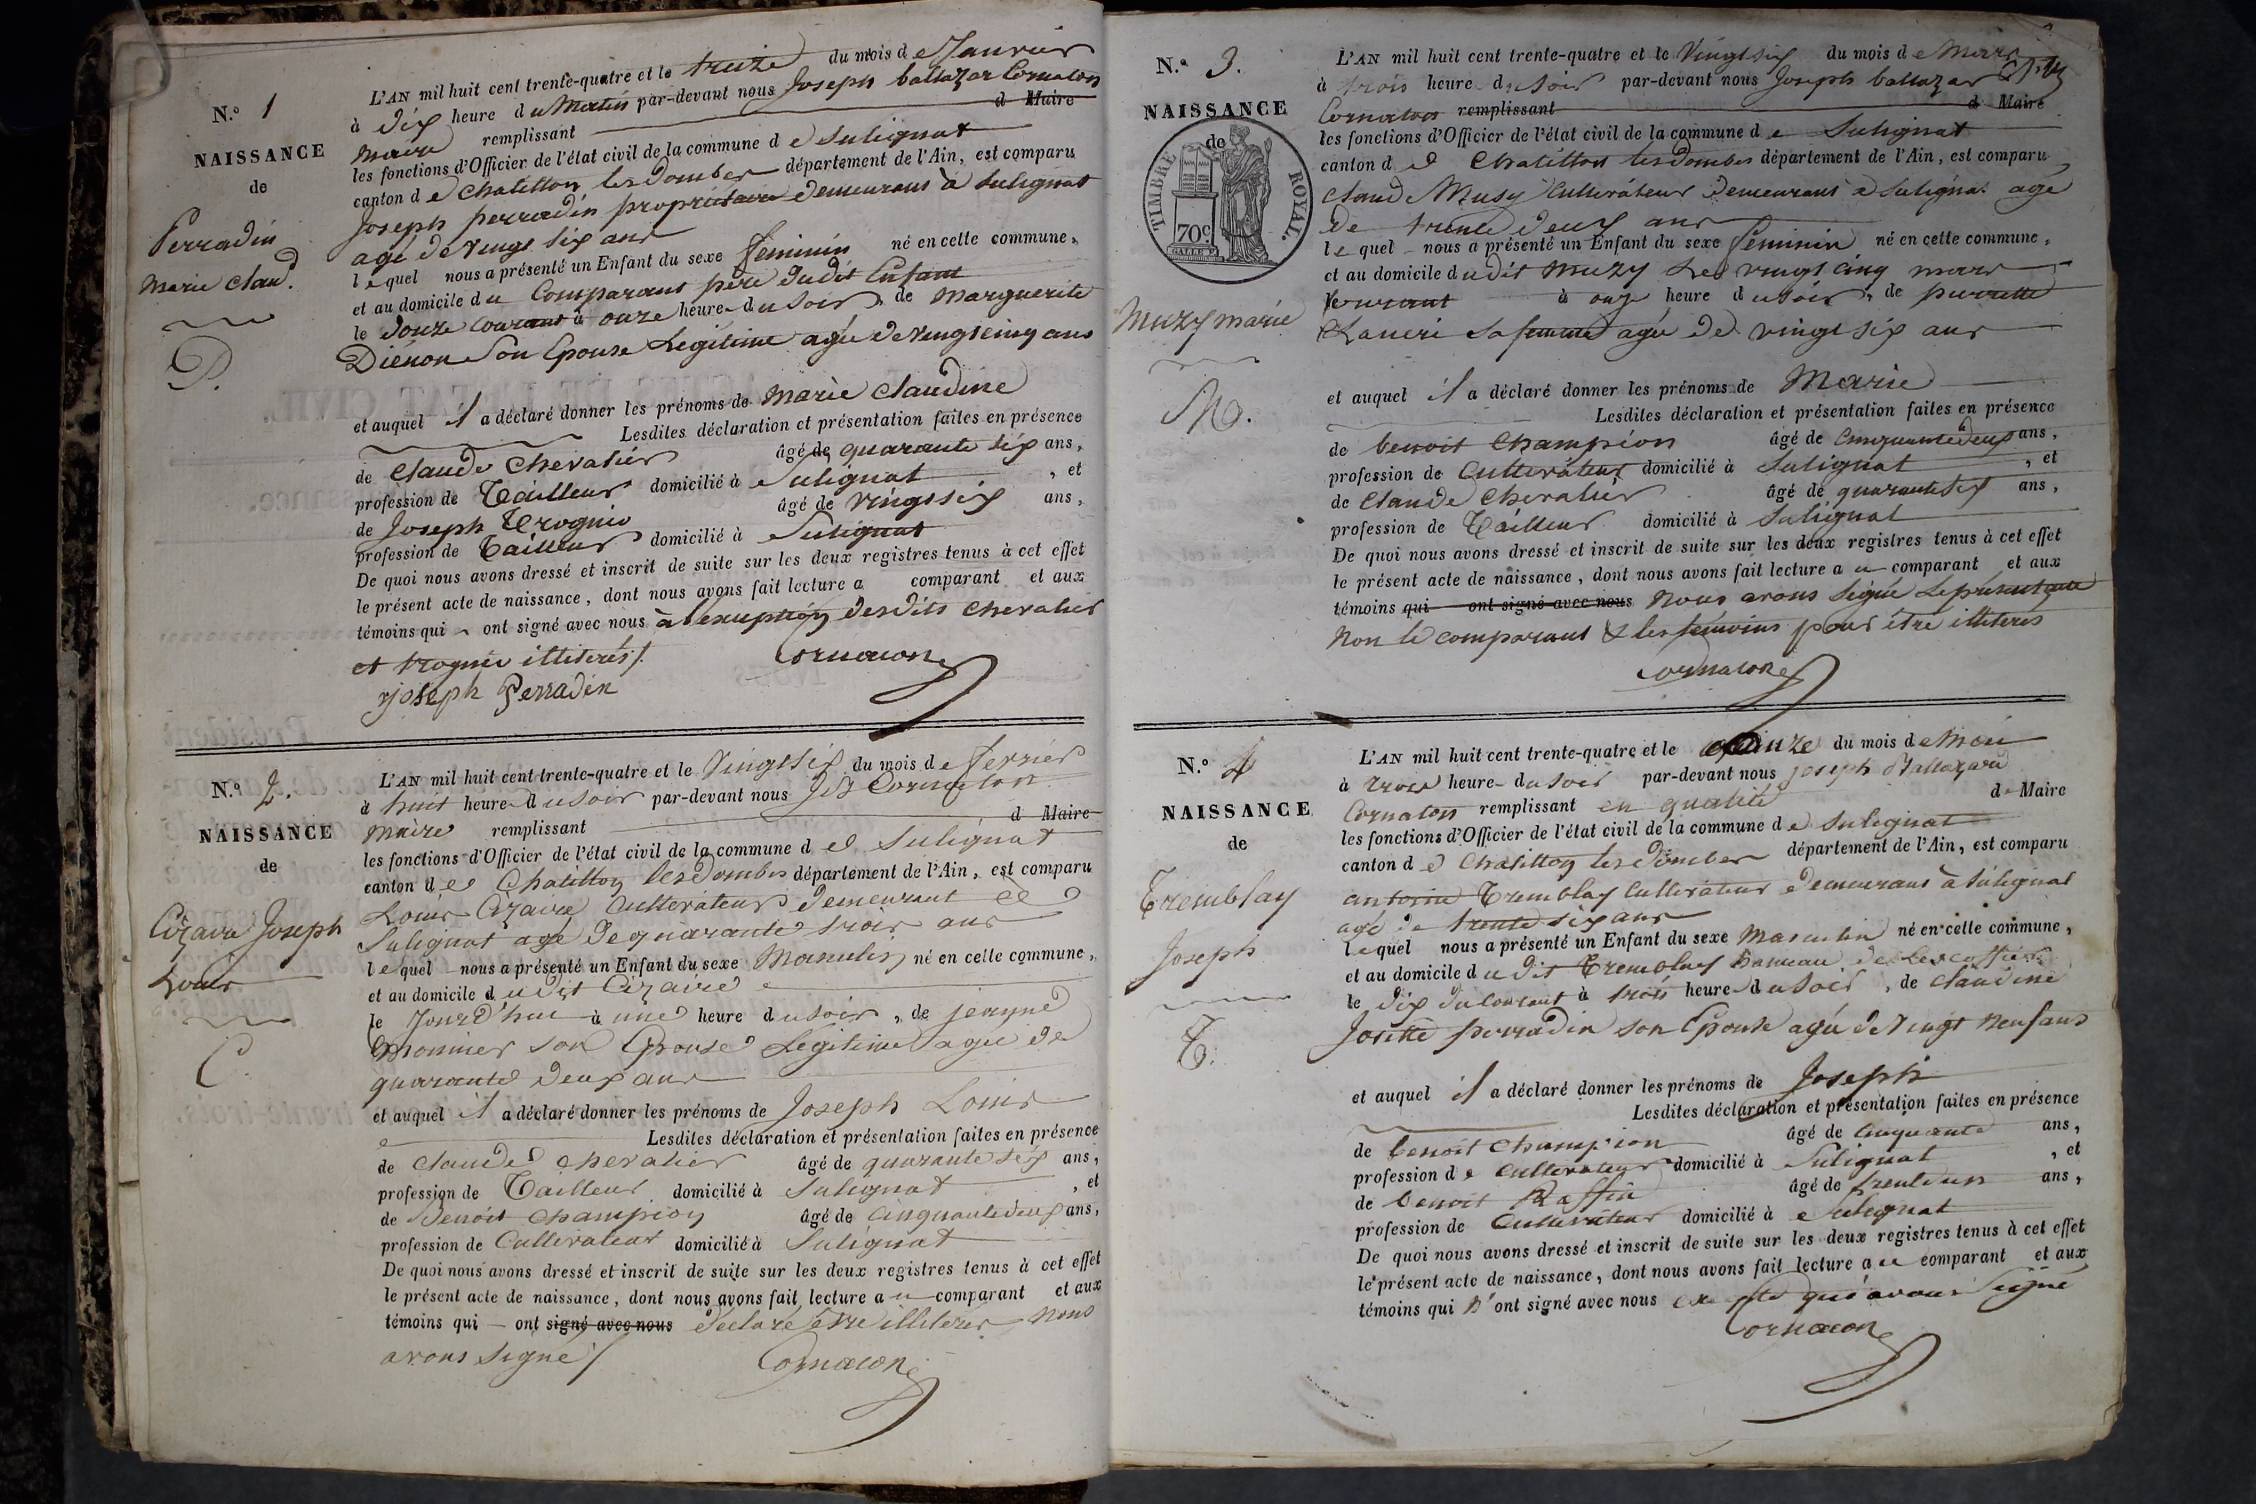 N.º 1
NAISSANCE
de
Perradin
Marie Claud.
P.
L'AN mil huit cent trente-quatre et le treize du mois de Janvier
à dix heure du Matin par-devant nous Joseph baltazar Cornaton
maire remplissant d Maire
les fonctions d'Officier de l'état civil de la commune de Sulignat
canton de Chatillon les dombes département de l'Ain, est comparu
Joseph perradin propriétaire demeurant à Sulignat
agé de vingt six ans
lequel nous a présenté un Enfant du sexe feminin né en cette commune,
et au domicile du Comparant père dudit Enfant
le douze courant à onze heure du soir, de Marguerite
Diénon son Epouse Légitime agée de vingt cinq ans
et auquel il a déclaré donner les prénoms de Marie Claudine
Lesdites déclaration et présentation faites en présence
de Claude Chevalier âgé de quarante six ans,
profession de Tailleur domicilié à Sulignat, et
de Joseph Trognié âgé de vingt six ans,
profession de Tailleur domicilié à Sulignat
De quoi nous avons dressé et inscrit de suite sur les deux registres tenus à cet effet
le présent acte de naissance, dont nous avons fait lecture a comparant et aux
témoins qui ont signé avec nous à l'exception desdits Chevalier
et trognié illiterés /.
Cornaton
joseph Perradin
N.º 2.
NAISSANCE
de
Cizaire Joseph
Louis
C.
L'AN mil huit cent trente-quatre et le Vingt six du mois de fevrier
à huit heure du soir par-devant nous Cornaton
maire remplissant d Maire
les fonctions d'Officier de l'état civil de la commune de Sulignat
canton de Chatillon les dombes département de l'Ain, est comparu
Louis Cizaire Cultivateur demeurant à
Sulignat agé de quarante trois ans
lequel nous a présenté un Enfant du sexe Masculin né en cette commune,
et au domicile dudit Cizaire
le Jourd'hui à une heure du soir, de jeanne
monnier son Epouse Légitime agée de
quarante deux ans
et auquel il a déclaré donner les prénoms de Joseph Louis
Lesdites déclaration et présentation faites en présence
de Claude Chevalier âgé de quarante six ans,
profession de Tailleur domicilié à Sulignat, et
de Benoit Champion âgé de cinquante deux ans,
profession de Cultivateur domicilié à Sulignat
De quoi nous avons dressé et inscrit de suite sur les deux registres tenus à cet effet
le présent acte de naissance, dont nous avons fait lecture au comparant et aux
témoins qui ont signé avec nous déclaré être illiterés nous
avons signé /
Cornaton
N.º 3.
NAISSANCE
de
TIMBRE ROYAL.
70c.
Muzy marie
M.
L'AN mil huit cent trente-quatre et le Vingt six du mois de Mars
à trois heure du soir par-devant nous Joseph baltazar
Cornaton remplissant d Maire
les fonctions d'Officier de l'état civil de la commune de Sulignat
canton de Chatillon les dombes département de l'Ain, est comparu
Claude Musy Cultivateur demeurant à Sulignat agé
de trente deux ans
lequel nous a présenté un Enfant du sexe feminin né en cette commune,
et au domicile dudit Muzy le vingt cinq mars
courant à onze heure du soir, de pierrette
sa femme agée de vingt six ans
et auquel il a déclaré donner les prénoms de Marie
Lesdites déclaration et présentation faites en présence
de benoit Champion âgé de cinquante deux ans,
profession de Cultivateur domicilié à Sulignat, et
de Claude Chevalier âgé de quarante six ans,
profession de Tailleur domicilié à Sulignat
De quoi nous avons dressé et inscrit de suite sur les deux registres tenus à cet effet
le présent acte de naissance, dont nous avons fait lecture au comparant et aux
témoins qui ont signé avec nous Nous avons signé le présent acte
non le comparant & les témoins pour être illiterés
Cornaton
N.º 4
NAISSANCE
de
Tremblay
Joseph
T.
L'AN mil huit cent trente-quatre et le quinze du mois de Mai
à trois heure du soir par-devant nous joseph Baltazard
Cornaton remplissant en qualité de Maire
les fonctions d'Officier de l'état civil de la commune de Sulignat
canton de Chatillon les dombes département de l'Ain, est comparu
antoine Tremblay Cultivateur demeurant à Sulignat
agé de trente six ans
lequel nous a présenté un Enfant du sexe Masculin né en cette commune,
et au domicile dudit Tremblay hameau de
le dix du courant à trois heure du soir, de Claudine
Josette perradin son Epouse agée de vingt neuf ans
et auquel il a déclaré donner les prénoms de Joseph
Lesdites déclaration et présentation faites en présence
de benoit Champion âgé de cinquante ans,
profession de Cultivateur domicilié à Sulignat, et
de benoit Raffin âgé de trente un ans,
profession de Cultivateur domicilié à Sulignat
De quoi nous avons dressé et inscrit de suite sur les deux registres tenus à cet effet
le présent acte de naissance, dont nous avons fait lecture au comparant et aux
témoins qui n'ont signé avec nous qui avons signé
Cornaton